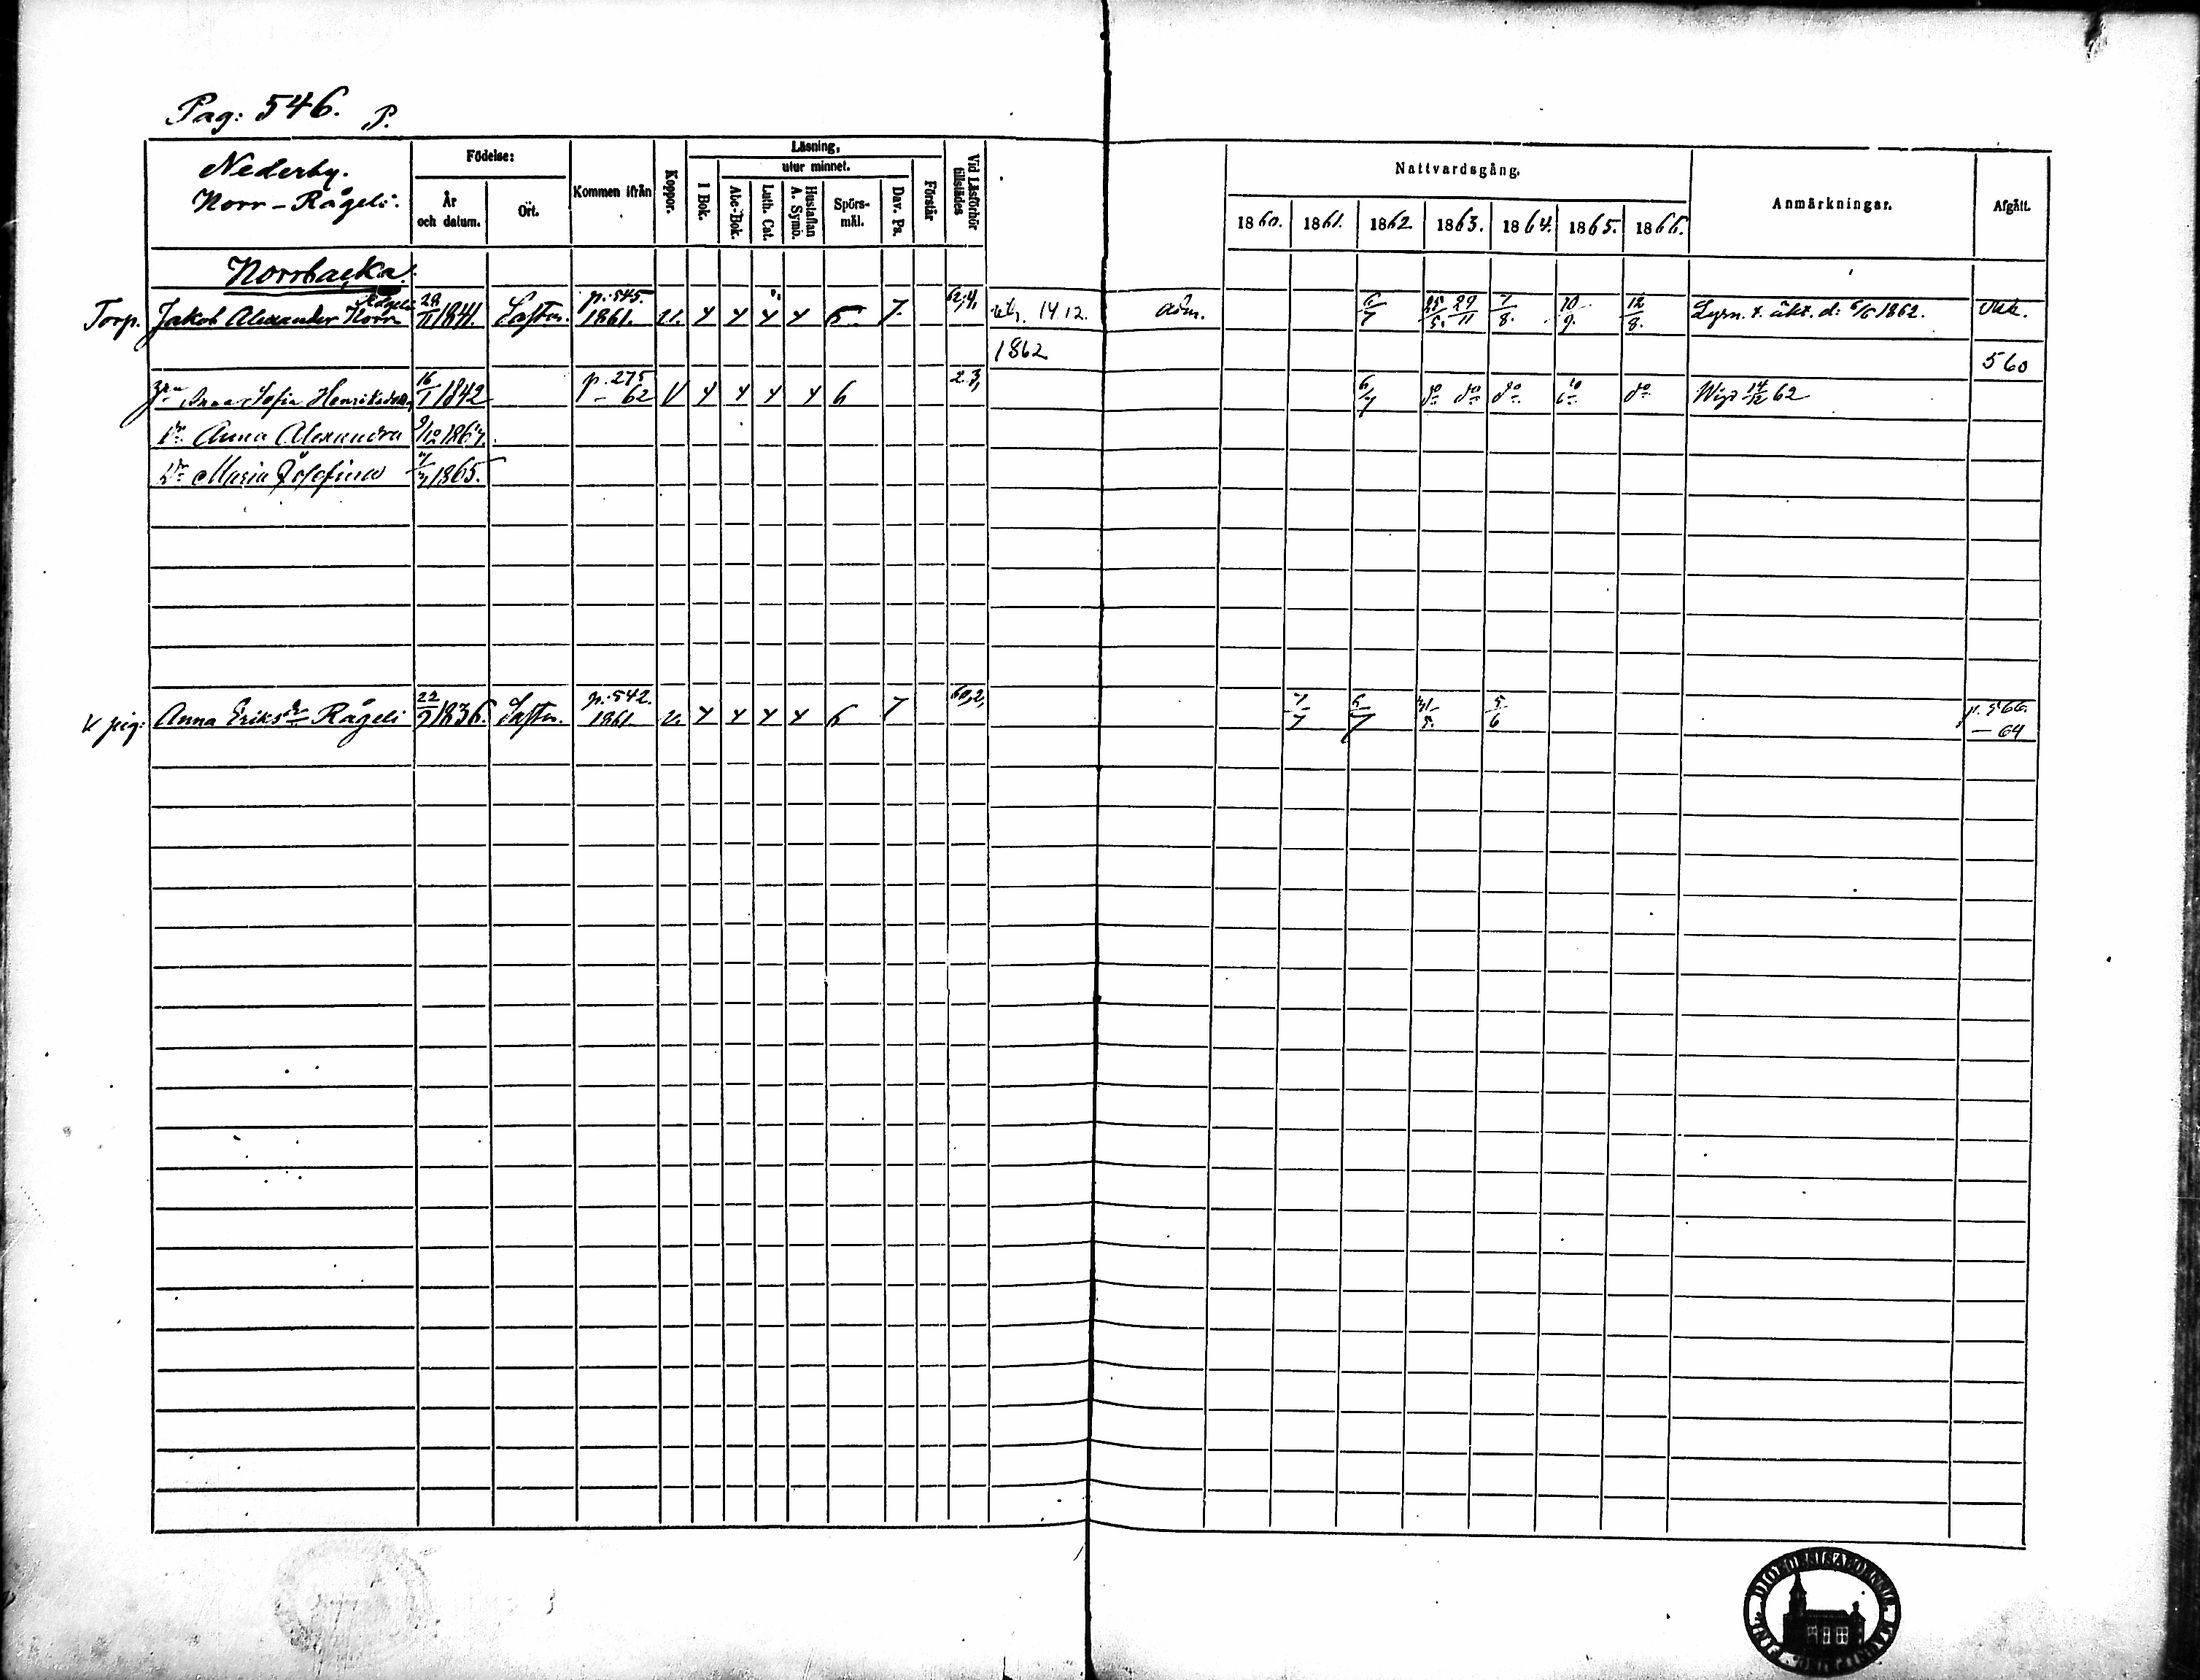 Pag: 546. P.
Nederby.
Norr-Rågeli.
Födelse:
År och datum.
Ort.
Kommen ifrån
Koppor.
Läsning,
utur minnet.
I Bok.
Abc-Bok.
Luth. Cat.
Hustaflan A. Symb.
Spörs-mål.
Dav. Ps.
Förstår
Vid Läsförhör tillstädes
Nattvardsgång.
1860. 1861. 1862 1863. 1864. 1865. 1866.
Anmärkningar.
Afgått.
Norrbacka.
Torp. Jakob Alexander Norr Rågeli 1841. Sastm. p. 545. 1861. v. y y y y 6 7. 62,4, 1412. adm. 6/7 25/5. 29/11 7/8. 10/9. 12/8. Lysn. t. äkt. d: 1862.
1862 560
Anna Sofia Henriksdotter 16/1 1842 p. 275 - 62 V y y y y 6 2.3, 6/7 do do do do do Wigd 62
Dr Anna Alexandra
Dr Maria Josefina 1865.
K pig: Anna Eriksdr Rågeli 22/9 1836. Sastm. p. 542. 1861 v. y y y y 6 7 60,2, 7/7 6/7 31/5. 5/6 p. 566. - 64
DIOECESIS ABOENSIS